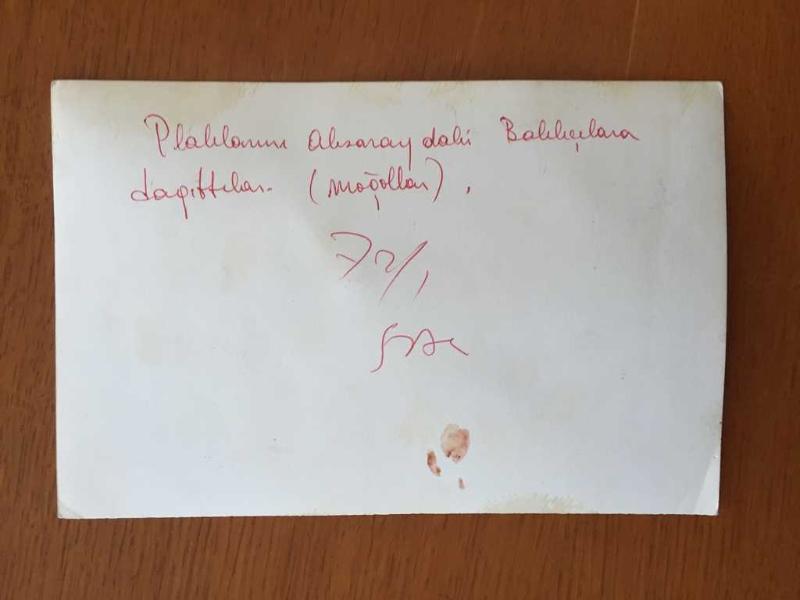 Plaklarını Aksaray daki Balıkçılara
dağıttılar. (Moğollar).
72/1